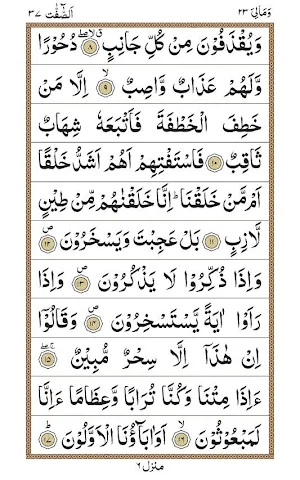 وَمَالِیَ ٢٣ اَلصّٰٓفّٰت ٣٧
وَيُقْذَفُوْنَ مِنْ كُلِّ جَانِبٍ ۖ ٨ دُحُوْرًا
وَّلَهُمْ عَذَابٌ وَّاصِبٌ ۙ ٩ اِلَّا مَنْ
خَطِفَ الْخَطْفَةَ فَاَتْبَعَهٗ شِهَابٌ
ثَاقِبٌ ١٠ فَاسْتَفْتِهِمْ اَهُمْ اَشَدُّ خَلْقًا
اَمْ مَّنْ خَلَقْنَا ؕ اِنَّا خَلَقْنٰهُمْ مِّنْ طِيْنٍ
لَّازِبٍ ١١ بَلْ عَجِبْتَ وَيَسْخَرُوْنَ ۪ ١٢
وَاِذَا ذُكِّرُوْا لَا يَذْكُرُوْنَ ۪ ١٣ وَاِذَا
رَاَوْا اٰيَةً يَّسْتَسْخِرُوْنَ ۪ ١٤ وَقَالُوْۤا
اِنْ هٰذَاۤ اِلَّا سِحْرٌ مُّبِيْنٌ ۚ ١٥
ءَاِذَا مِتْنَا وَكُنَّا تُرَابًا وَّعِظَامًا ءَاِنَّا
لَمَبْعُوْثُوْنَ ۙ ١٦ اَوَاٰبَآؤُنَا الْاَوَّلُوْنَ ؕ ١٧
منزل ٦